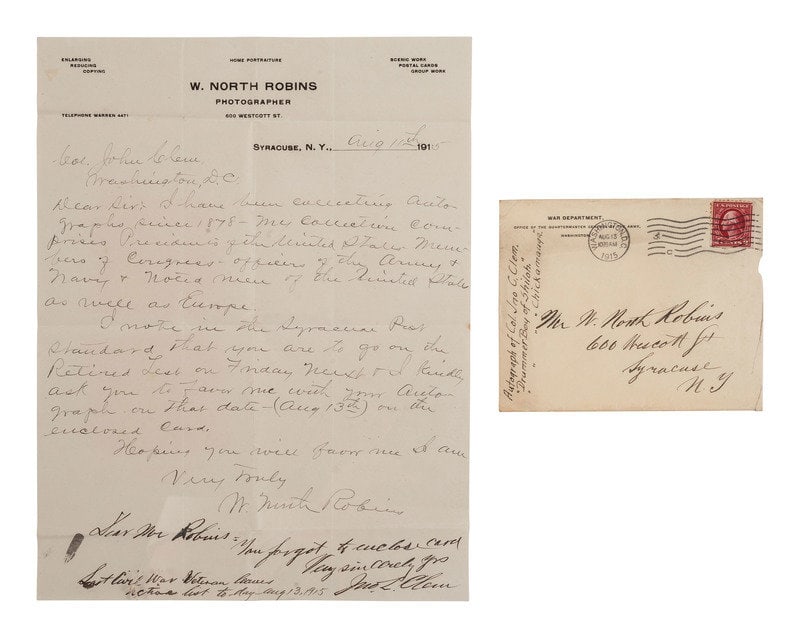 ENLARGING
REDUCING
COPYING
HOME PORTRAITURE
SCENIC WORK
POSTAL CARDS
GROUP WORK
W. NORTH ROBINS
PHOTOGRAPHER
600 WESTCOTT ST.
TELEPHONE WARREN 4471
SYRACUSE, N. Y., Aug 11th 1915
Col. John Clem,
Washington, D.C.
Dear Sir: I have been collecting Auto-
graphs since 1878 - My Collection com-
prises Presidents of the United States Mem-
bers of Congress - officers of the Army &
Navy & Noted men of the United States
as well as Europe.
I note in the Syracuse Post
Standard that you are to go on the
Retired List on Friday Next & I Kindly
ask you to favor me with your Auto-
graph on that date - (Aug 13th) on the
enclosed Card.
Hoping you will favor me I am
Very Truly
W. North Robins
Dear Mr Robins =
You forgot to enclose card
Very sincerely yrs
Jno. L. Clem
Last Civil War Veteran leaves
active list to-day Aug 13, 1915
WAR DEPARTMENT
OFFICE OF THE QUARTERMASTER GENERAL OF THE ARMY,
WASHINGTON
WASHINGTON, D.C.
AUG 13
1915
U.S. POSTAGE
Autograph of Col Jno C. Clem.
"Drummer Boy of Shiloh."
" " " Chickamauga
Mr W. North Robins
600 Wescott St
Syracuse
N Y